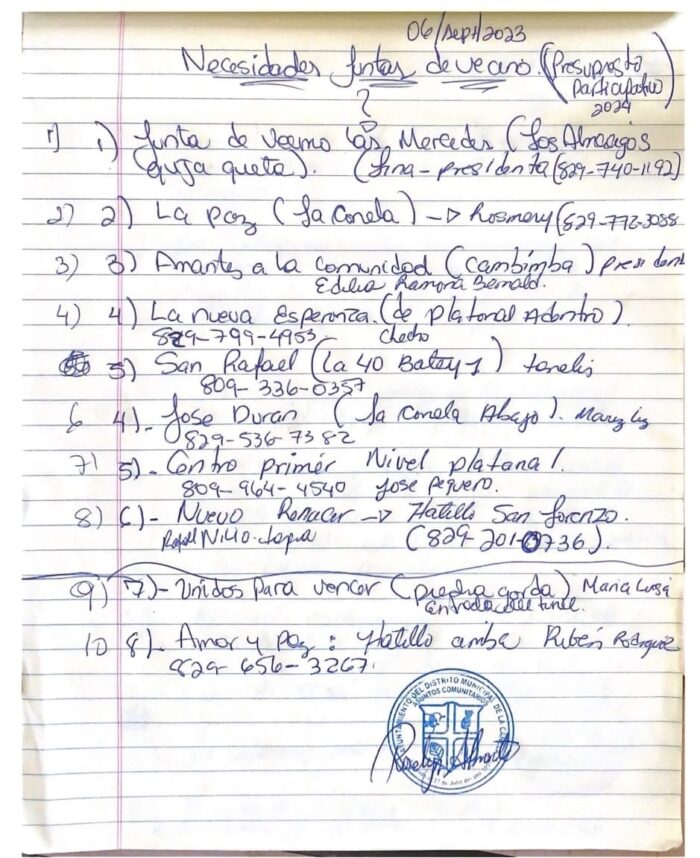 06/Sept/2023
Necesidades Juntas de vecino. (Presupuesto
Participativo
2024
?
1) 1) Junta de Vecino las Mercedes (Los
(Lina - presidenta (829-740-1192)
2) 2) La paz (La Canela) -> Rosmery (829-772-3088
3) 3) Amantes a la comunidad (Cambimba) president
Edilia Ramona Bernald.
4) 4) La nueva Esperanza. (de Platanal Adentro).
829-799-4953 Checho
5) San Rafael (La 40 Batey 1)
809-336-0357
6 4)- Jose Duran (La Canela Abajo).
829-536-7382
7) 5)- Centro primer Nivel platanal.
809-964-4540 Jose Peguero.
8) 6)- Nuevo Renacer -> Hatillo San Lorenzo.
Rafael (829-201-0736).
9) 7)- Unidos para vencer (piedra gorda) Maria Luisa
entrada del tunel.
10 8)- Amor y paz: Hatillo arriba Rubén Rodriguez
829-656-3267.
AYUNTAMIENTO DEL DISTRITO MUNICIPAL DE LA
ASUNTOS COMUNITARIOS